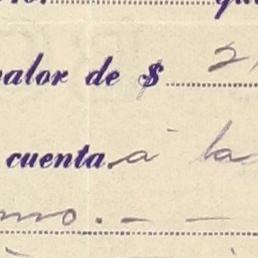 valor de $ 2
cuenta a la
mo. - -